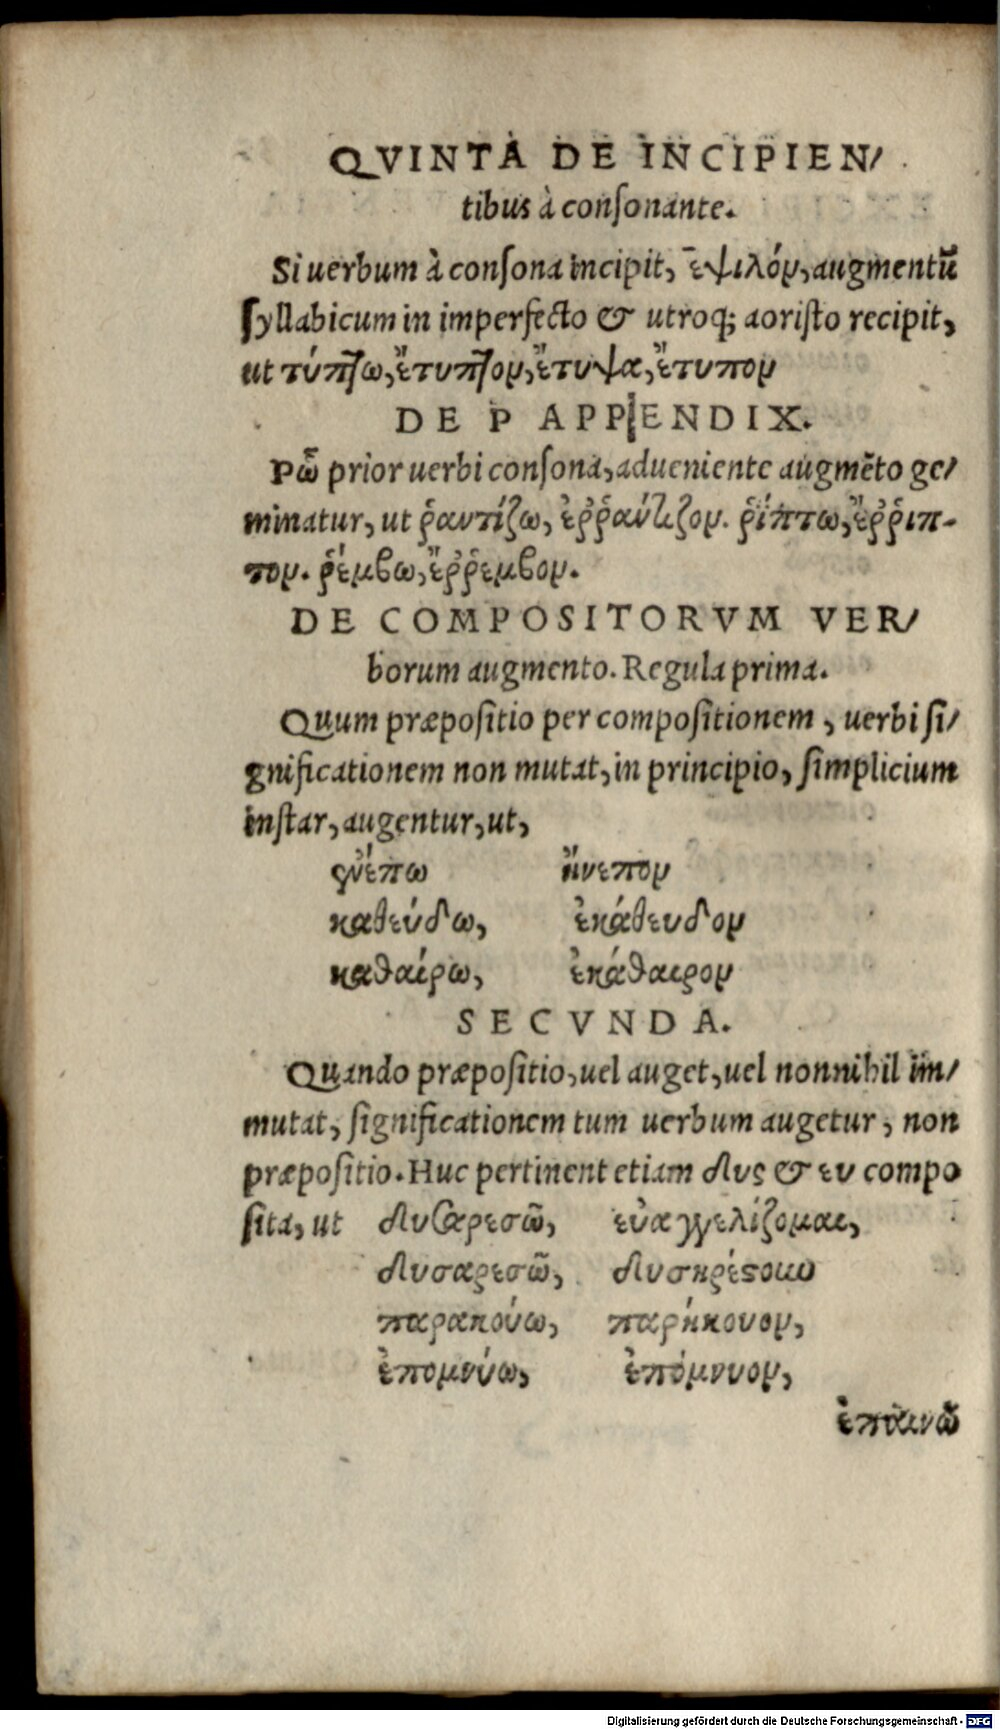 QVINTA DE INCIPIEN/
tibus à consonante.
Si uerbum à consona incipit, ἐψιλόν, augmentũ
syllabicum in imperfecto & utroq; aoristo recipit,
ut τύπτω, ἔτυπτον, ἔτυψα, ἔτυπον
DE P APPENDIX.
Ρῶ prior uerbi consona, adueniente augmẽto ge/
minatur, ut ῥαντίζω, ἐῤῥάντιζον. ῥίπτω, ἔῤῥιπ-
τον. ῥέμβω, ἔῤῥεμβον.
DE COMPOSITORVM VER/
borum augmento. Regula prima.
Quum præpositio per compositionem, uerbi si/
gnificationem non mutat, in principio, simplicium
instar, augentur, ut,
ἐνέπω ἤνεπον
καθεύδω, ἐκάθευδον
καθαίρω, ἐκάθαιρον
SECVNDA.
Quando præpositio, uel auget, uel nonnihil im/
mutat, significationem tum uerbum augetur, non
præpositio. Huc pertinent etiam δυς & ευ compo
sita, ut δυσαρεσῶ, εὐαγγελίζομαι,
δυσαρεσῶ, δυσηρέστουν
παρακούω, παρήκουον,
ἐπομνύω, ἐπόμνυον,
ἐπαινῶ
Digitalisierung gefördert durch die Deutsche Forschungsgemeinschaft - DFG